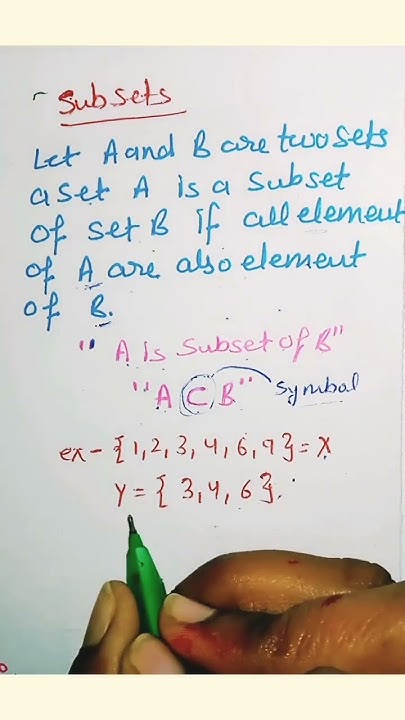 Subsets
Let A and B are two sets
a set A is a subset
of set B if all element
of A are also element
of B.
"A is subset of B"
"A ⊂ B" symbol
ex - {1, 2, 3, 4, 6, 9} = X
Y = { 3, 4, 6}.